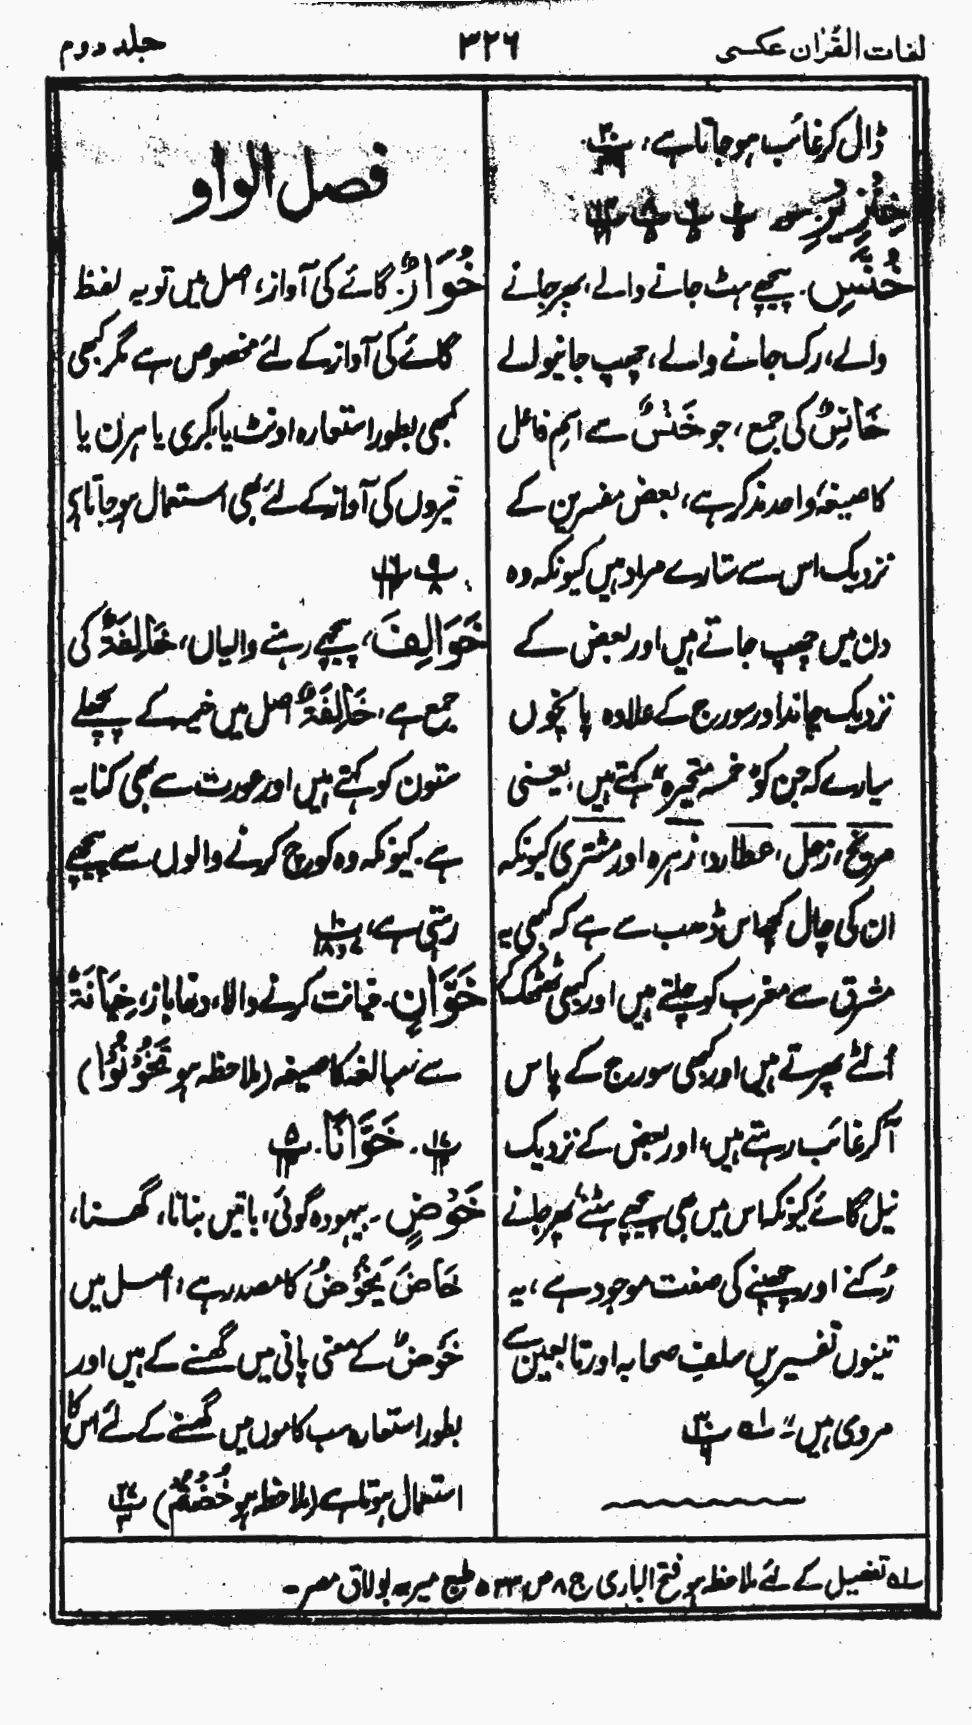 لغات القرٰان عکسی
۳۲۶
جلد دوم
ڈال کر غائب ہو جاتا ہے، پ۳۰
خِنْزِيْرٍ سور
خُنَّسِ۔ پیچھے ہٹ جانے والے، پھر جانے
والے، رک جانے والے، چھپ جانیوالے
خَانِسٌ کی جمع، جو خَنْسٌ سے اسمِ فاعل
کا صیغۂ واحد مذکر ہے، بعض مفسرین کے
نزدیک اس سے ستارے مراد ہیں کیونکہ وہ
دن میں چھپ جاتے ہیں اور بعض کے
نزدیک چاند اور سورج کے علاوہ پانچوں
سیارے کہ جن کو "خمسہ متحیرہ" کہتے ہیں، یعنی
مریخ، زحل، عطارد، زہرہ اور مشتری کیونکہ
ان کی چال کچھ اس ڈھب سے ہے کہ کبھی یہ
مشرق سے مغرب کو چلتے ہیں اور کبھی ٹھٹھک کر
اُلٹے پھرتے ہیں اور کبھی سورج کے پاس
آ کر غائب رہتے ہیں، اور بعض کے نزدیک
نیل گائے کیونکہ اس میں بھی پیچھے ہٹنے پھر جانے
رُکنے اور چھپنے کی صفت موجود ہے، یہ
تینوں تفسیریں سلفِ صحابہ اور تابعین سے
مروی ہیں لہ پ۳۰ ۶
فصل الواو
خُوَارٌ۔ گائے کی آواز، اصل میں تو یہ لفظ
گائے کی آواز کے لئے مخصوص ہے مگر کبھی
کبھی بطور استعارہ اونٹ یا بکری یا ہرن یا
تیروں کی آواز کے لئے بھی استعمال ہو جاتا ہے
پ۹ ۸ پ۱۶
خَوَالِفَ، پیچھے رہنے والیاں، خَالِفَةٌ کی
جمع ہے، خَالِفَةٌ اصل میں خیمہ کے پچھلے
ستون کو کہتے ہیں اور عورت سے بھی کنایہ
ہے۔ کیونکہ وہ کوچ کرنے والوں سے پیچھے
رہتی ہے، پ۱۰
خَوَّانٍ۔ خیانت کرنے والا، دغا باز، خِيَانَةٌ
سے مبالغہ کا صیغہ (ملاحظہ ہو تَخُوْنُوْا)
پ۱۷. خَوَّانًا. پ۵
خَوْضٍ۔ بیہودہ گوئی، باتیں بنانا، گھسنا،
خَاضَ يَخُوْضُ کا مصدر ہے، اصل میں
خَوضٌ کے معنی پانی میں گھسنے کے ہیں اور
بطور استعارہ سب کاموں میں گھسنے کے لئے اس کا
استعمال ہوتا ہے (ملاحظہ ہو خُضْتُمْ) پ۲۷
لہ تفصیل کے لئے ملاحظہ ہو فتح الباری ج ۸ ص ۵۳۳ طبع میریہ بولاق مصر۔